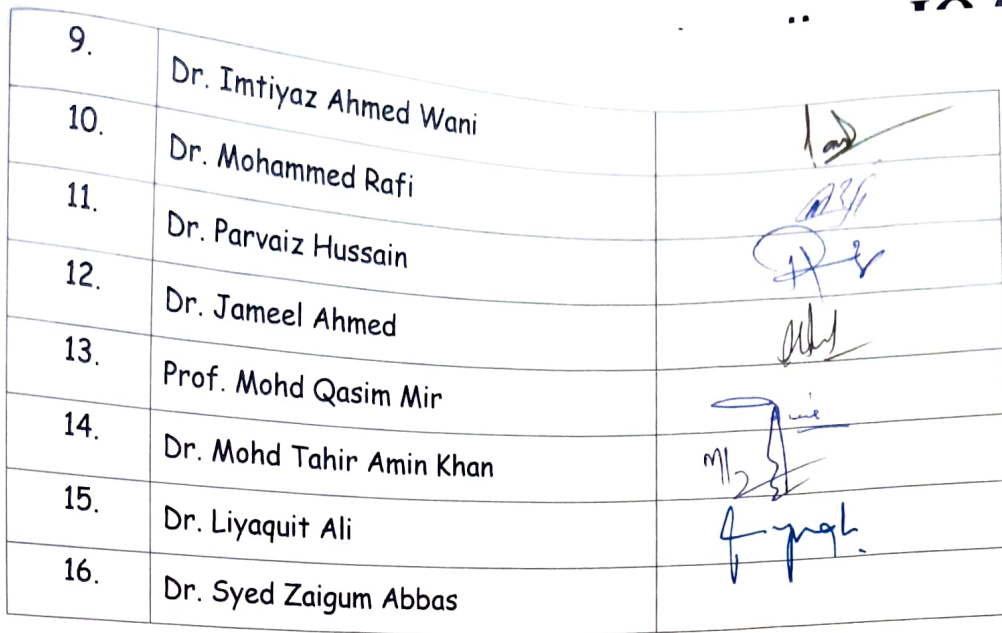 9. Dr. Imtiyaz Ahmed Wani
10. Dr. Mohammed Rafi
11. Dr. Parvaiz Hussain
12. Dr. Jameel Ahmed
13. Prof. Mohd Qasim Mir
14. Dr. Mohd Tahir Amin Khan
15. Dr. Liyaquit Ali
16. Dr. Syed Zaigum Abbas